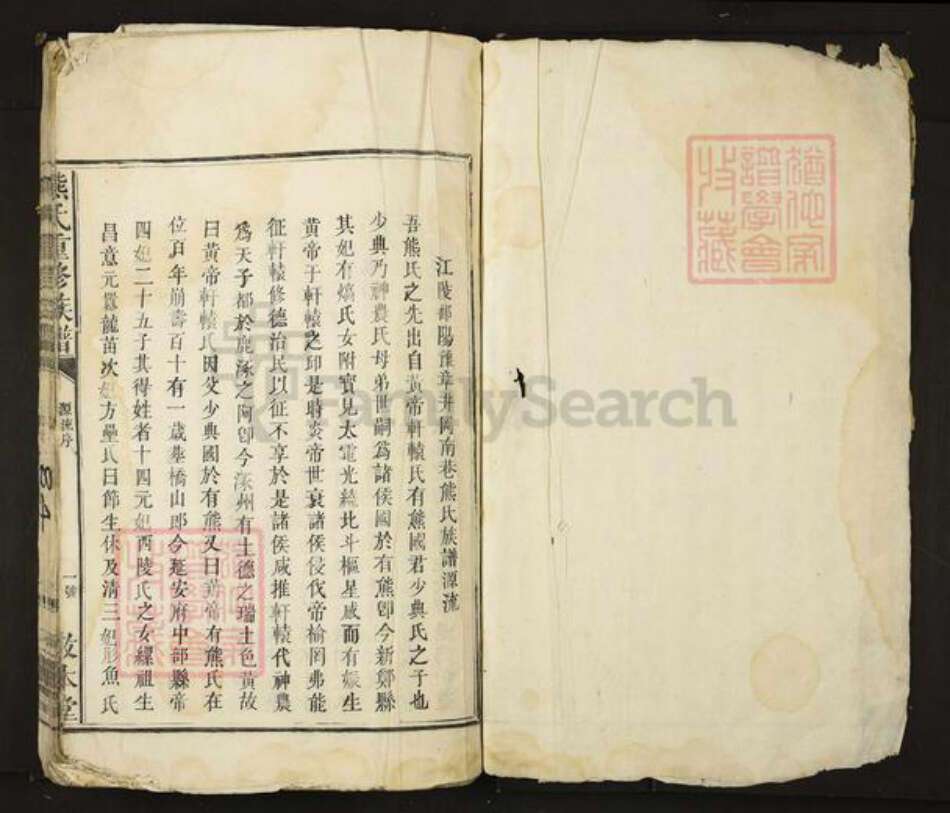 江陵鄱陽豫章井岡南巷熊氏族譜源流
吾熊氏之先出自黃帝軒轅氏有熊國君少典氏之子也
少典乃神農氏母弟世嗣爲諸侯國於有熊卽今新鄭縣
其妃有熇氏女附寶見太電光繞北斗樞星感而有娠生
黃帝于軒轅之邱是時炎帝世衰諸侯侵伐帝榆罔弗能
征軒轅修德治民以征不享於是諸侯咸推軒轅代神農
爲天子都於鹿涿之阿卽今涿州有土德之瑞土色黃故
曰黃帝軒轅氏因父少典國於有熊又曰黃帝有熊氏在
位百年崩壽百十有一歲塟橋山即今延安府中部縣帝
四妃二十五子其得姓者十四元妃西陵氏之女縲祖生
昌意元囂龍苗次妃方壘氏曰節生休及清三妃彤魚氏
熊氏重修族譜
源流序
一號
敦本堂
猶他家
譜學會
收藏
FamilySearch